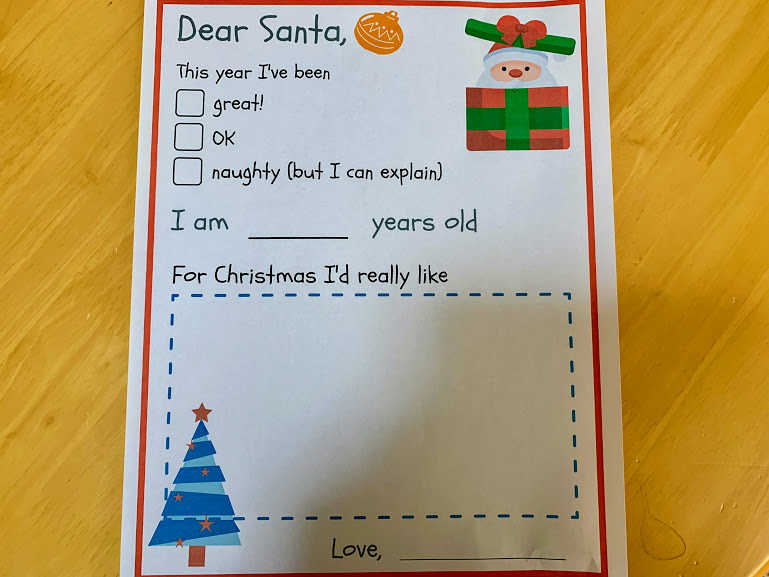 Dear Santa,
This year I've been
great!
OK
naughty (but I can explain)
I am ________ years old
For Christmas I'd really like
Love, ____________